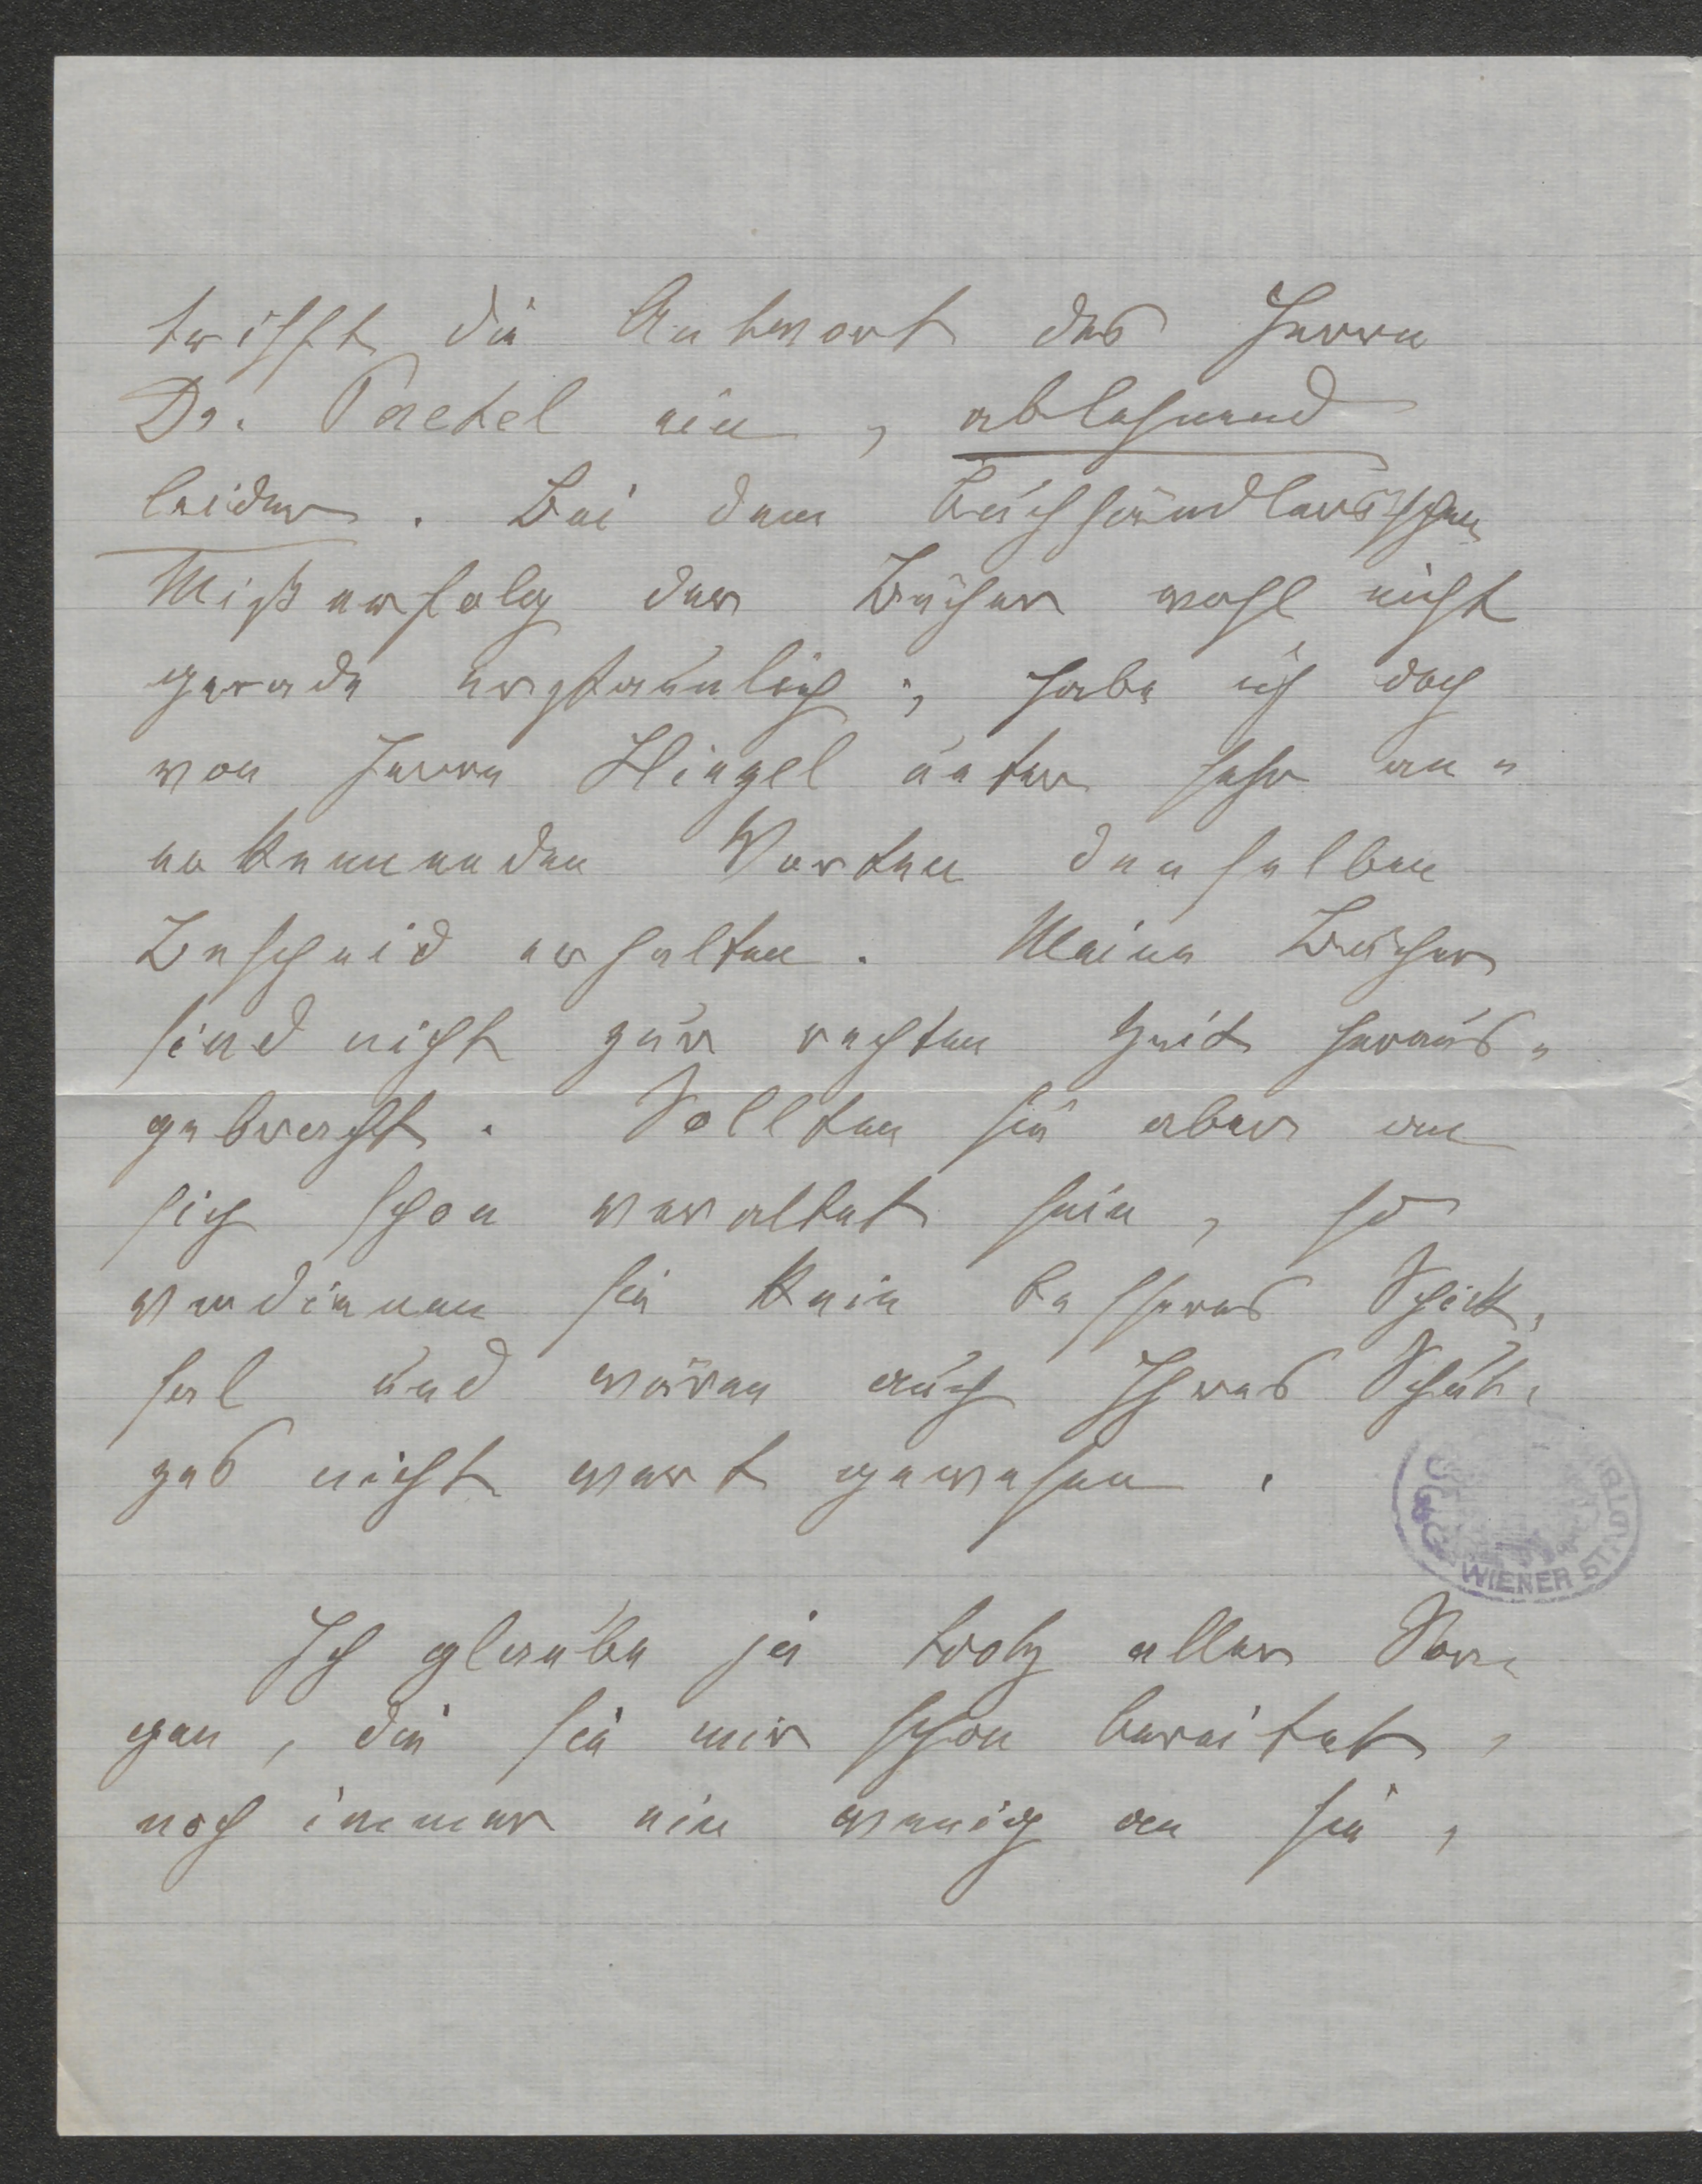 trifft die Antwort des Herrn
Dr. Paetel ein, ablehnend
leider. Bei dem buchhändlerischen
Mißerfolg der Bücher wohl nicht
gerade erstaunlich; habe ich doch
von Herrn unter sehr an-
erkennenden Worten denselben
Bescheid erhalten. Meine Bücher
sind nicht zur rechten Zeit heraus-
gebracht. Sollten sie aber an
sich schon veraltet sein, so
verdienen sie kein besseres Schick-
sal und wären auch Ihres Schut-
zes nicht wert gewesen.
Ich glaube ja trotz aller Sor-
gen, die sie mir schon bereitet,
noch immer ein wenig an sie,
WIENER STADTBI